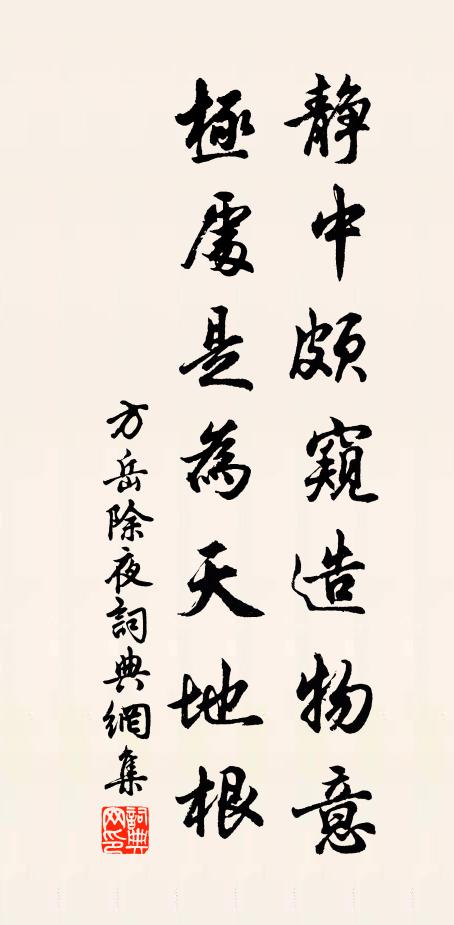 静中頗窺造物意
極處是為天地根
方岳除夜詞典網集
詞典网印